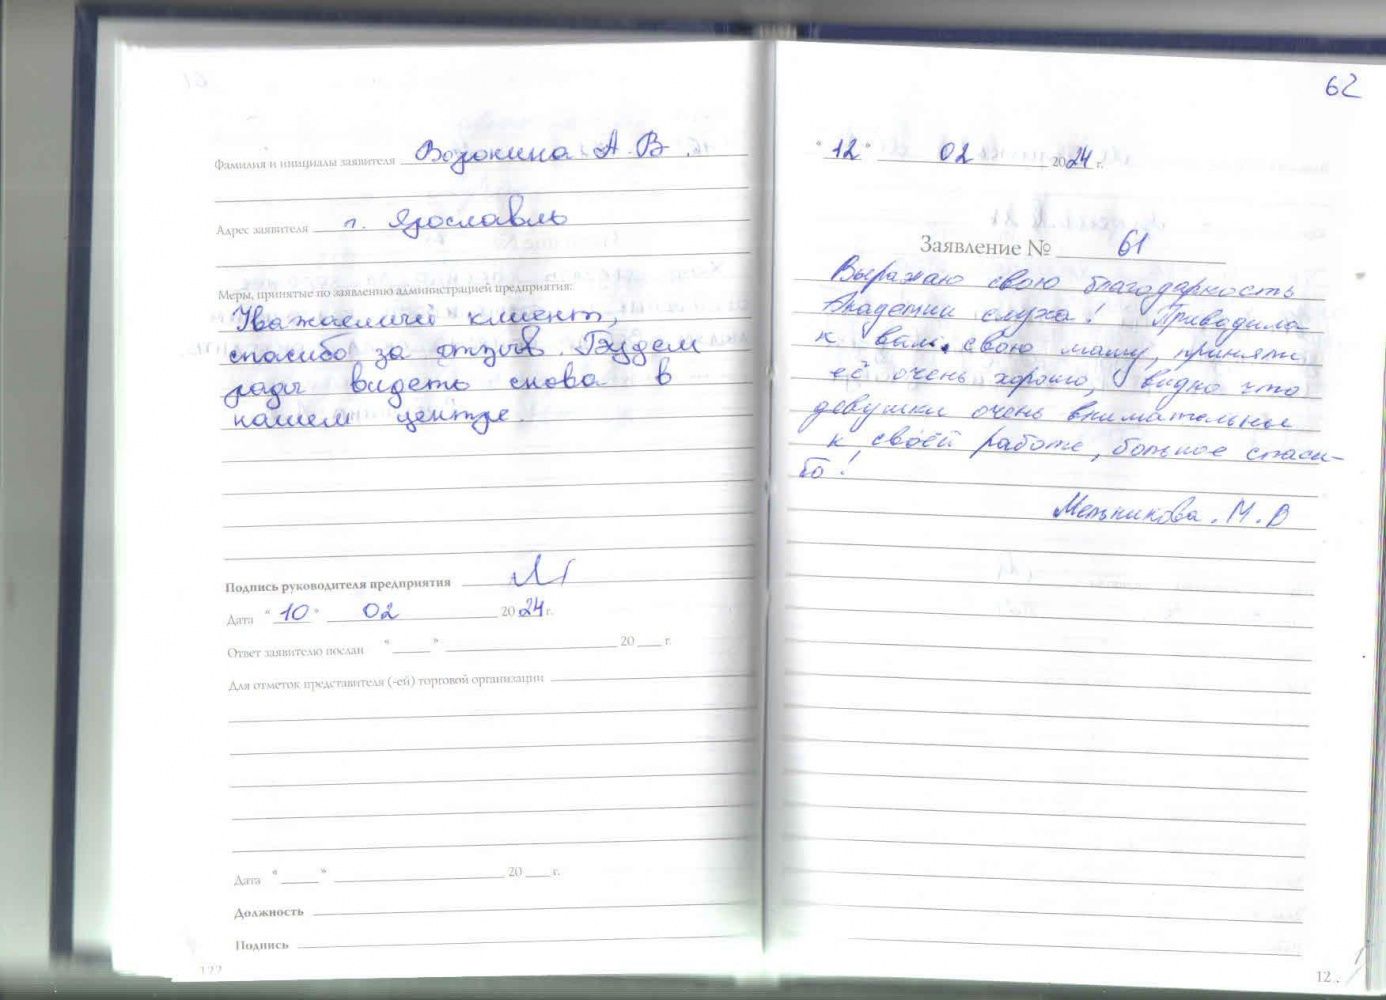 Фамилия и инициалы заявителя Возокина А.В.
Адрес заявителя г. Ярославль
Меры, принятые по заявлению администрацией предприятия:
Уважаемый клиент,
спасибо за отзыв. Будем
рады видеть снова в
нашем центре.
Подпись руководителя предприятия
Дата "10" 02 2024 г.
Ответ заявителю послан "___" ___ 20 ___ г.
Для отметок представителя (-ей) торговой организации
Дата "___" ___ 20 ___ г.
Должность
Подпись
122
62
"12" 02 2024 г.
Заявление № 61
Выражаю свою благодарность
Академии слуха! Приводила
к вам свою маму, приняли
её очень хорошо, видно что
девушки очень внимательные
к своей работе, большое спаси-
бо!
Мельникова. М. В